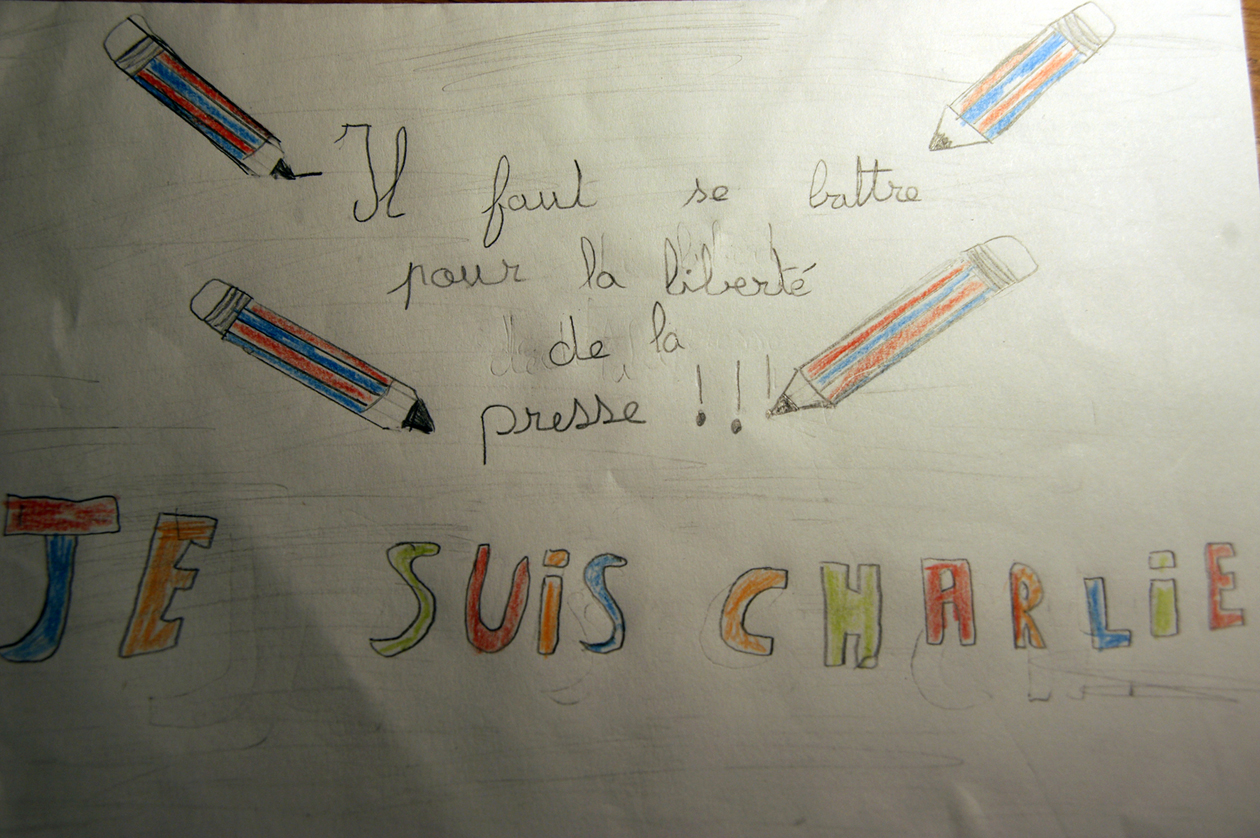 Il faut se battre
pour la liberté
de la
presse !!!
JE SUiS CHARLiE